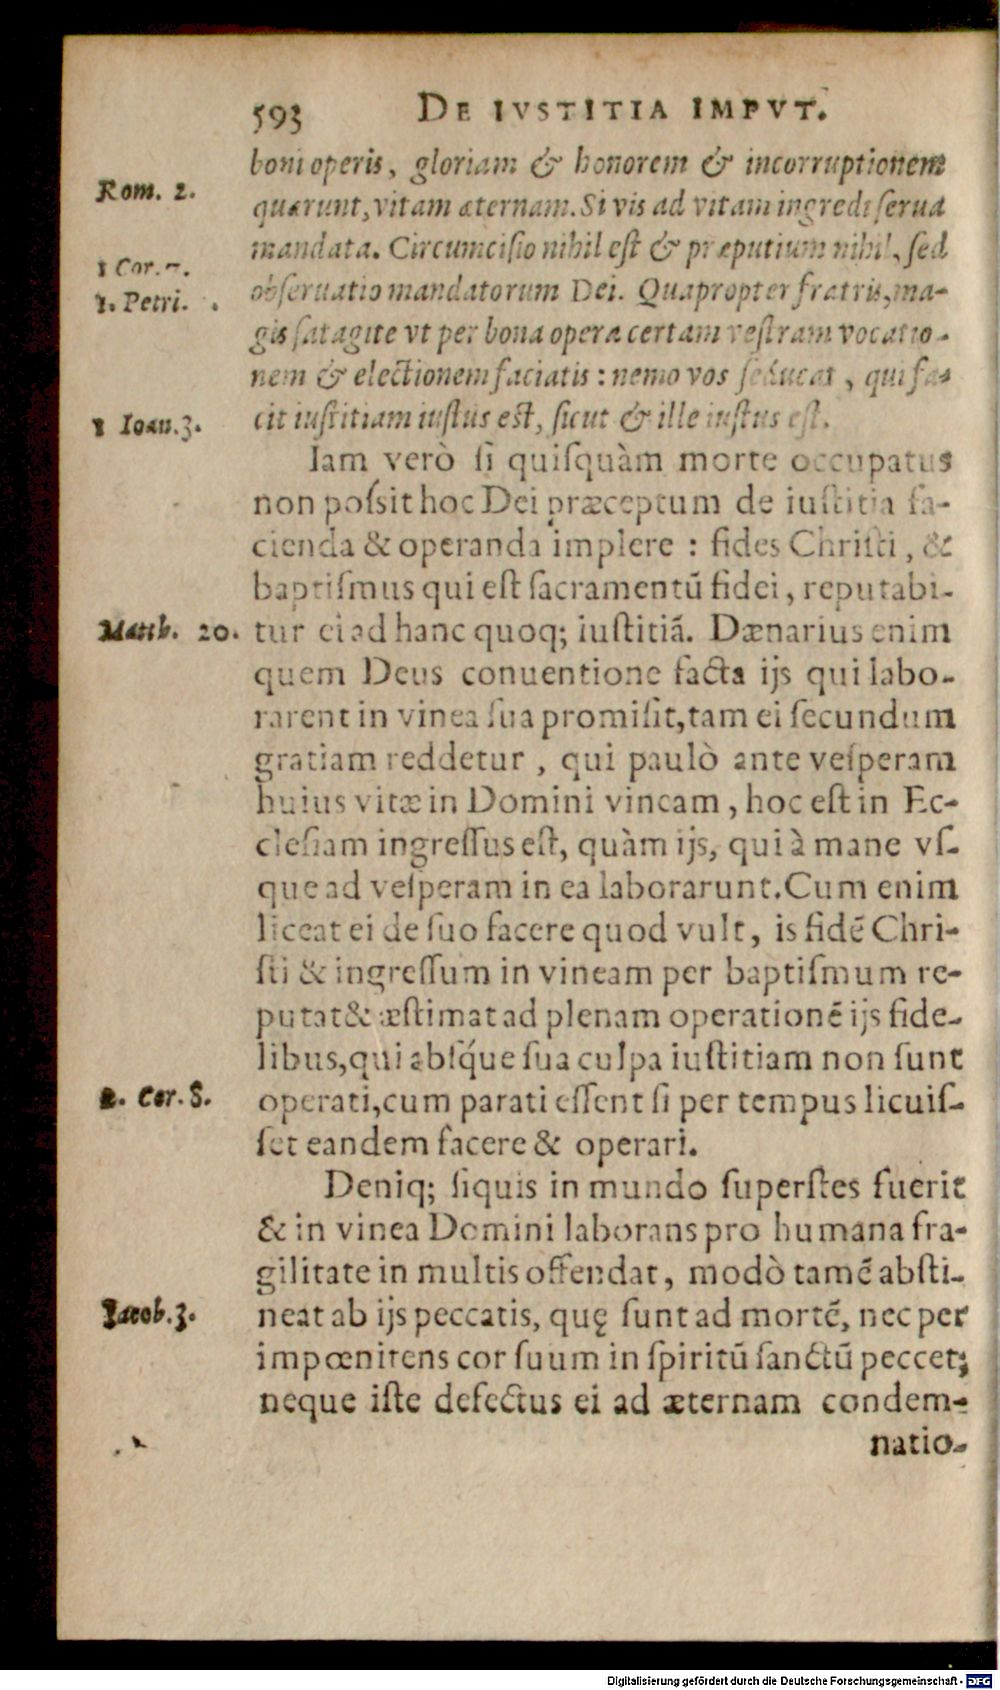 593 DE IVSTITIA IMPVT.
boni operis, gloriam & honorem & incorruptionem
Rom. 2.
quærunt, vitam æternam. Si vis ad vitam ingredi serua
mandata. Circumcisio nihil est & præputium nihil, sed
1 Cor. 7.
obseruatio mandatorum Dei. Quapropter fratris, ma-
1. Petri.
gis satagite vt per bona opera certam vestram vocatio-
nem & electionem faciatis : nemo vos seducat, qui fa-
cit iustitiam iustus est, sicut & ille iustus est.
1 Ioan. 3.
Iam verò si quisquàm morte occupatus
non possit hoc Dei præceptum de iustitia fa-
cienda & operanda implere : fides Christi, &
baptismus qui est sacramentū fidei, reputabi-
Matth. 20.
tur ei ad hanc quoq; iustitiā. Dænarius enim
quem Deus conuentione facta ijs qui labo-
rarent in vinea sua promisit, tam ei secundum
gratiam reddetur, qui paulò ante vesperam
huius vitæ in Domini vineam, hoc est in Ec-
clesiam ingressus est, quàm ijs, qui à mane vs-
que ad vesperam in ea laborarunt. Cum enim
liceat ei de suo facere quod vult, is fidē Chri-
sti & ingressum in vineam per baptismum re-
putat & æstimat ad plenam operationē ijs fide-
libus, qui absq́ue sua culpa iustitiam non sunt
2. Cor. 8.
operati, cum parati essent si per tempus licuis-
set eandem facere & operari.
Deniq; siquis in mundo superstes fuerit
& in vinea Domini laborans pro humana fra-
gilitate in multis offendat, modò tamē absti-
Iacob. 3.
neat ab ijs peccatis, quę sunt ad mortē, nec per
impœnitens cor suum in spiritū sanctū peccet;
neque iste defectus ei ad æternam condem-
natio-
Digitalisierung gefördert durch die Deutsche Forschungsgemeinschaft - DFG